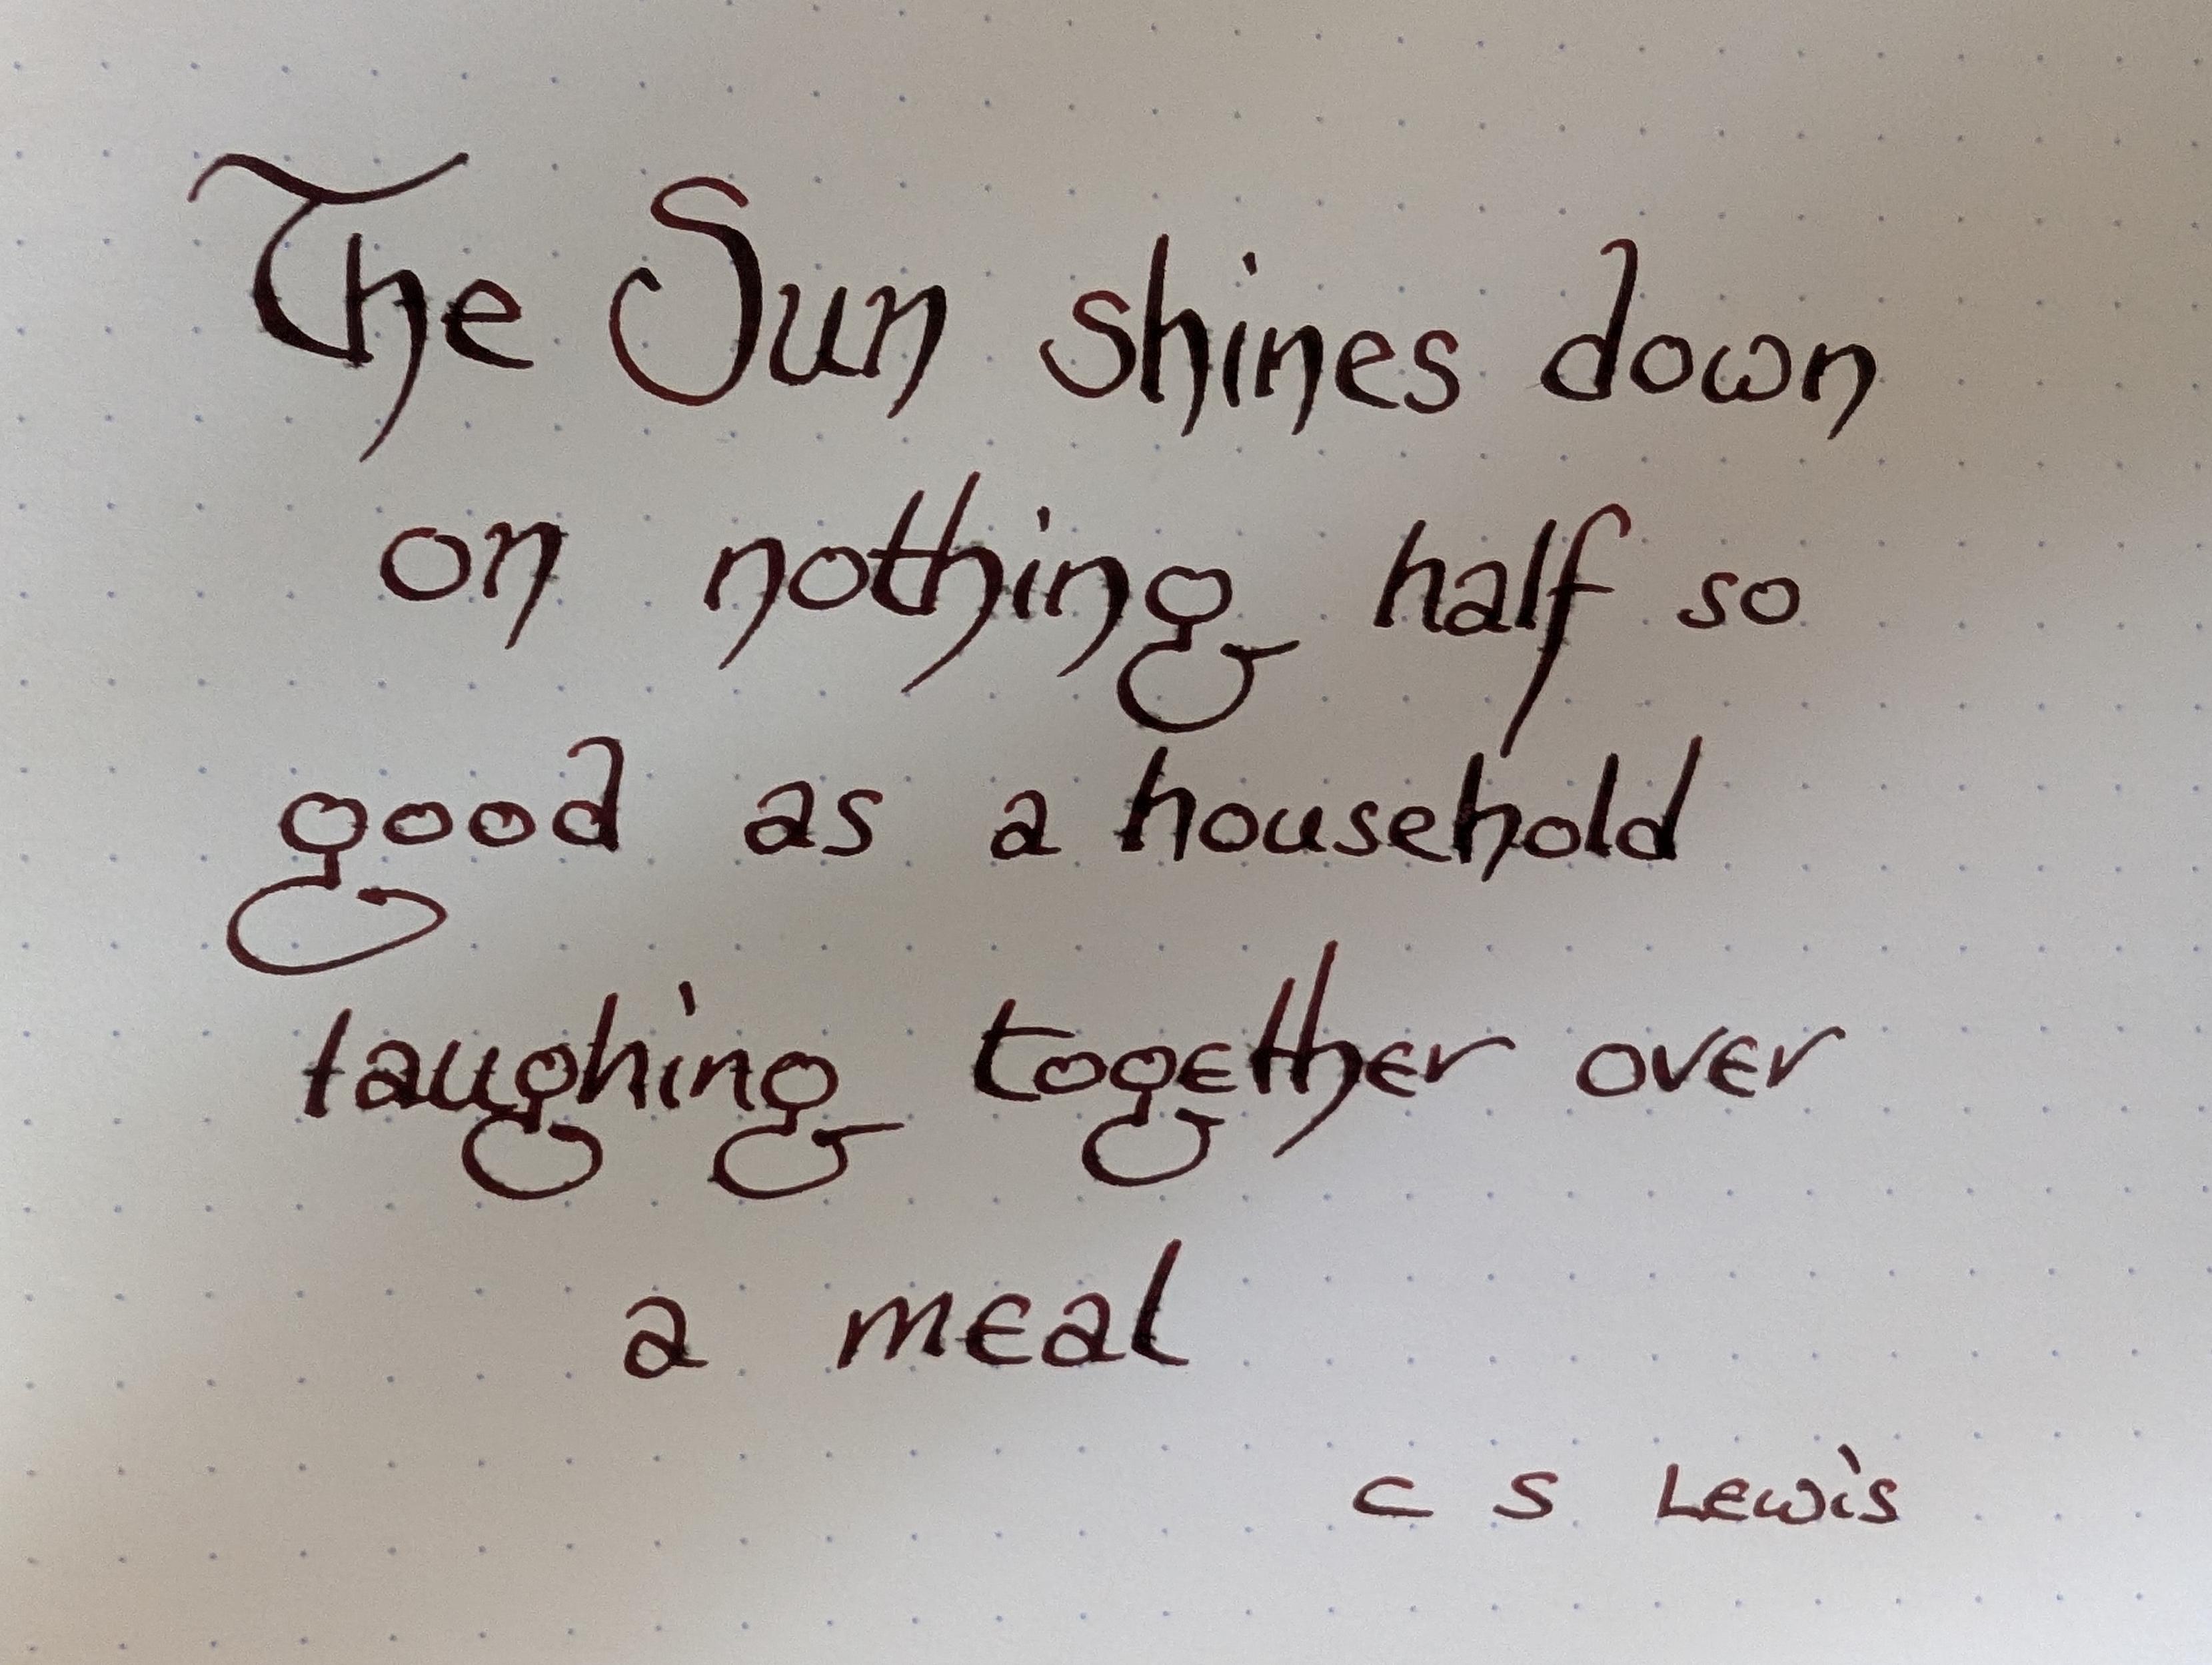 The Sun shines down
on nothing half so
good as a household
laughing together over
a meal
C S Lewis